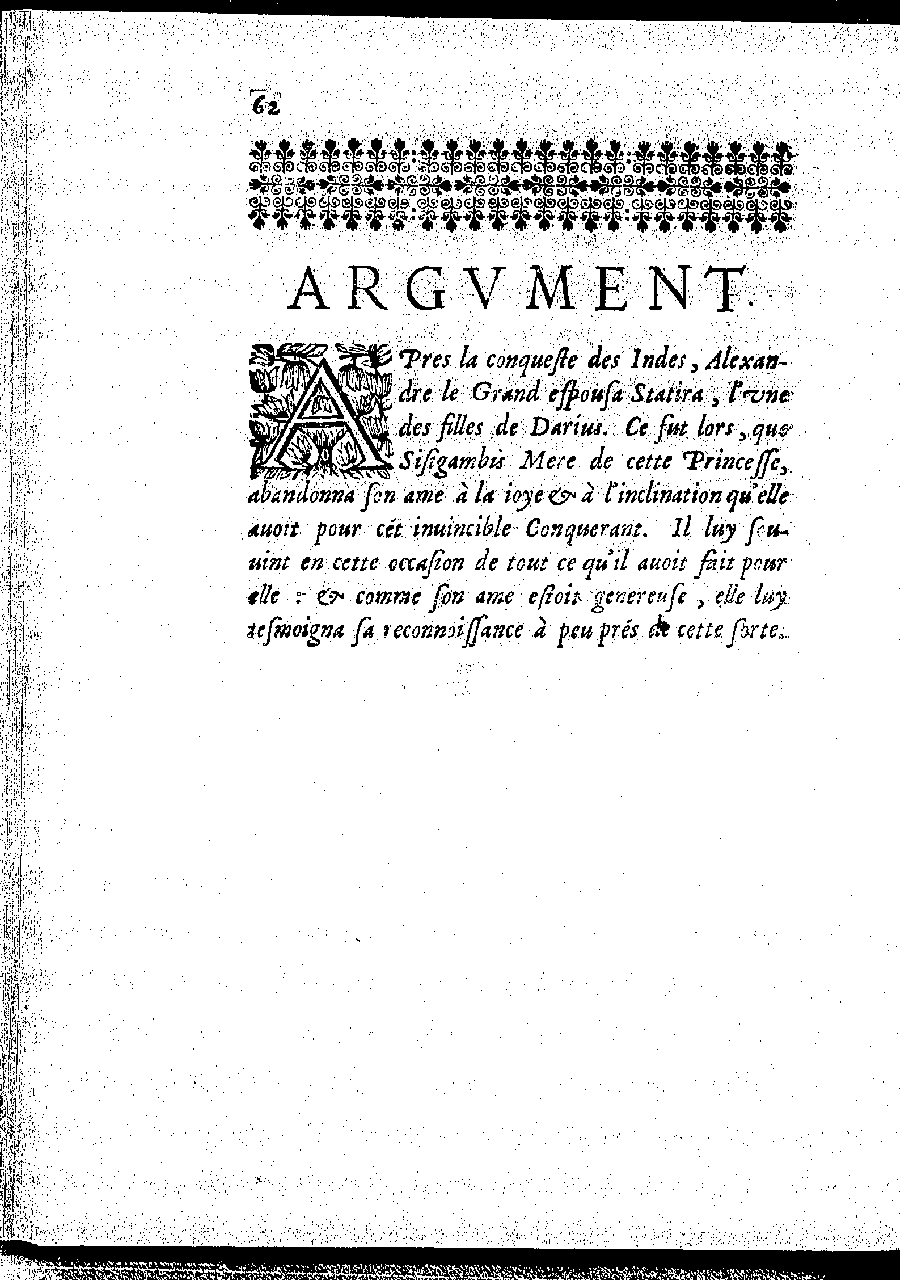 62
ARGVMENT.
APres la conqueste des Indes, Alexan-
dre le Grand espousa Statira, l'vne
des filles de Darius. Ce fut lors, que
Sisigambis Mere de cette Princesse,
abandonna son ame à la ioye & à l'inclination qu'elle
auoit pour cét inuincible Conquerant. Il luy sou-
uint en cette occasion de tout ce qu'il auoit fait pour
elle : & comme son ame estoit genereuse, elle luy
tesmoigna sa reconnoissance à peu prés de cette sorte.